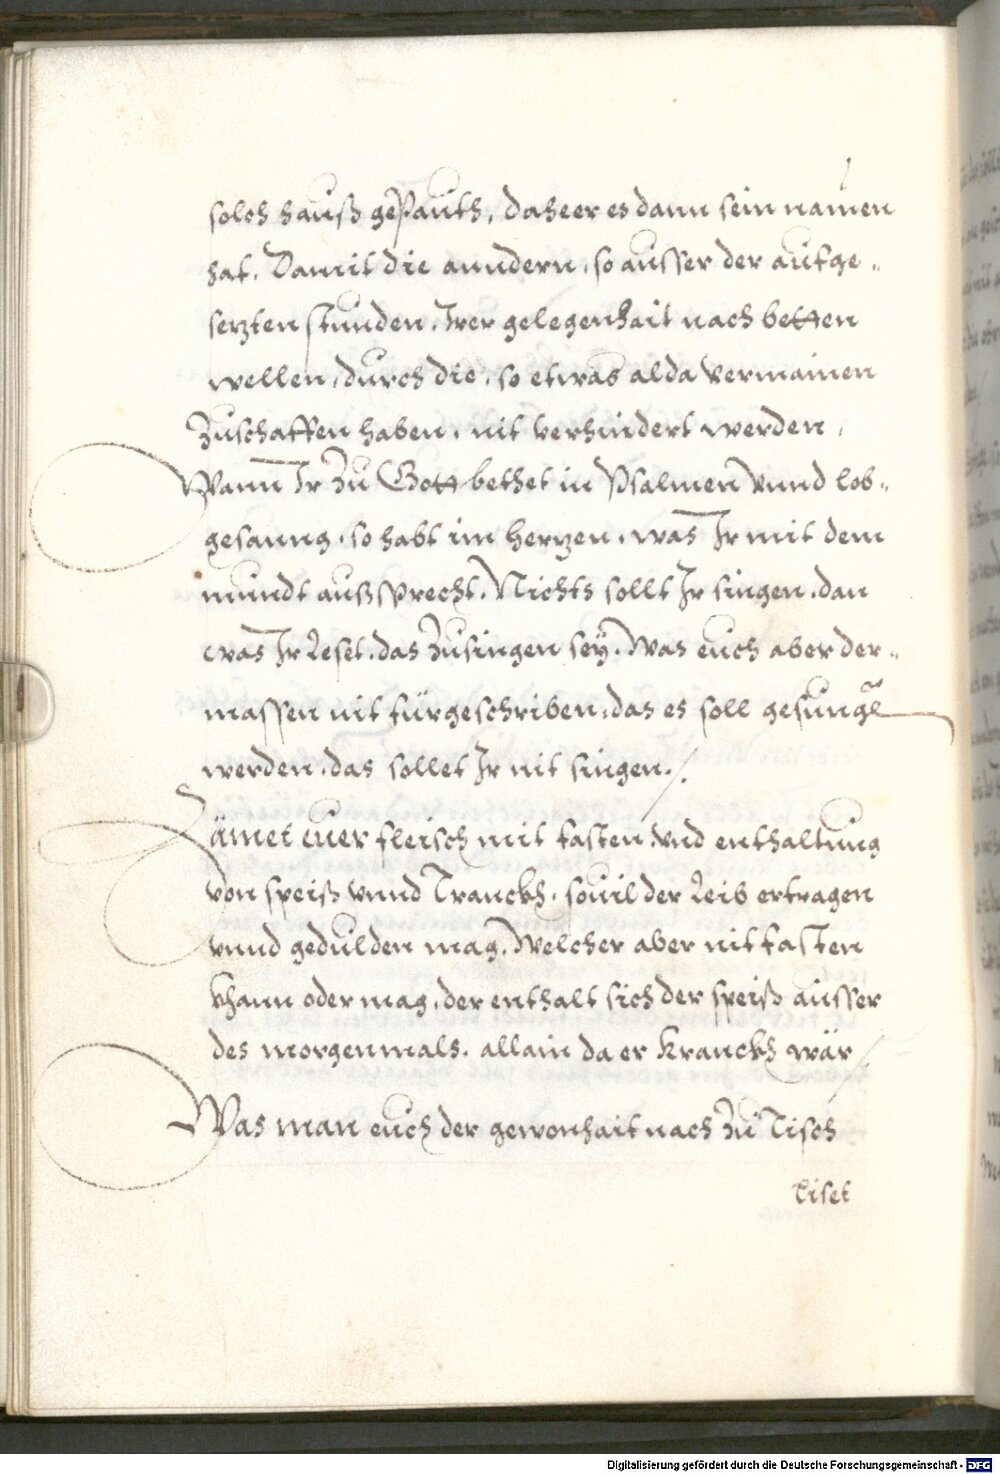 solch hauß gepauth, daheer es dann sein namen
hat. Damit die anndern, so ausser der aufge„
setzten stunden. Irer gelegenhait nach betten
wellen, durch die, so etwas alda vermainen
Zuschaffen haben, nit verhindert werden,
Wann Ir zu Gott bethet in Psalmen vnnd lob„
gesanng, so habt im hertzen, was Ir mit dem
mundt außsprecht. Nichts sollt Ir singen, dan
was Ir leset, das zusingen sey. Was euch aber der„
massen nit fürgeschriben, das es soll gesungen
werden, das sollet Ir nit singen.
Zämet euer fleisch mit fasten, vnd enthaltung
von speiß vnnd Tranckh, souil der leib ertragen
vnnd gedulden mag. Welcher aber nit fasten
khann oder mag, der enthalt sich der speiß ausser
des morgenmals, allain da er kranckh wär
Was man euch der gewonhait nach zu Tisch
liset
Digitalisierung gefördert durch die Deutsche Forschungsgemeinschaft - DFG